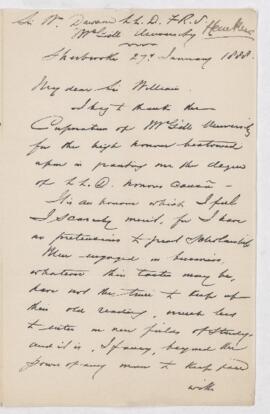 Sir Wm Dawson L.L.D. F.R.S.
McGill University
Heneker
Sherbrooke 27th January 1888.
My dear Sir William.
I beg to thank the
Corporation of McGill University
for the high honour bestowed
upon in granting me the degree
of L.L.D. honoris causâ —
It is an honour which I feel
I scarcely merit, for I have
no pretensions to great scholarship
Men engaged in business,
whatever their tastes may be,
have not the time to keep up
their old reading, much less
to enter on new fields of study,
and it is, I fancy, beyond the
power of any man to keep pace
with